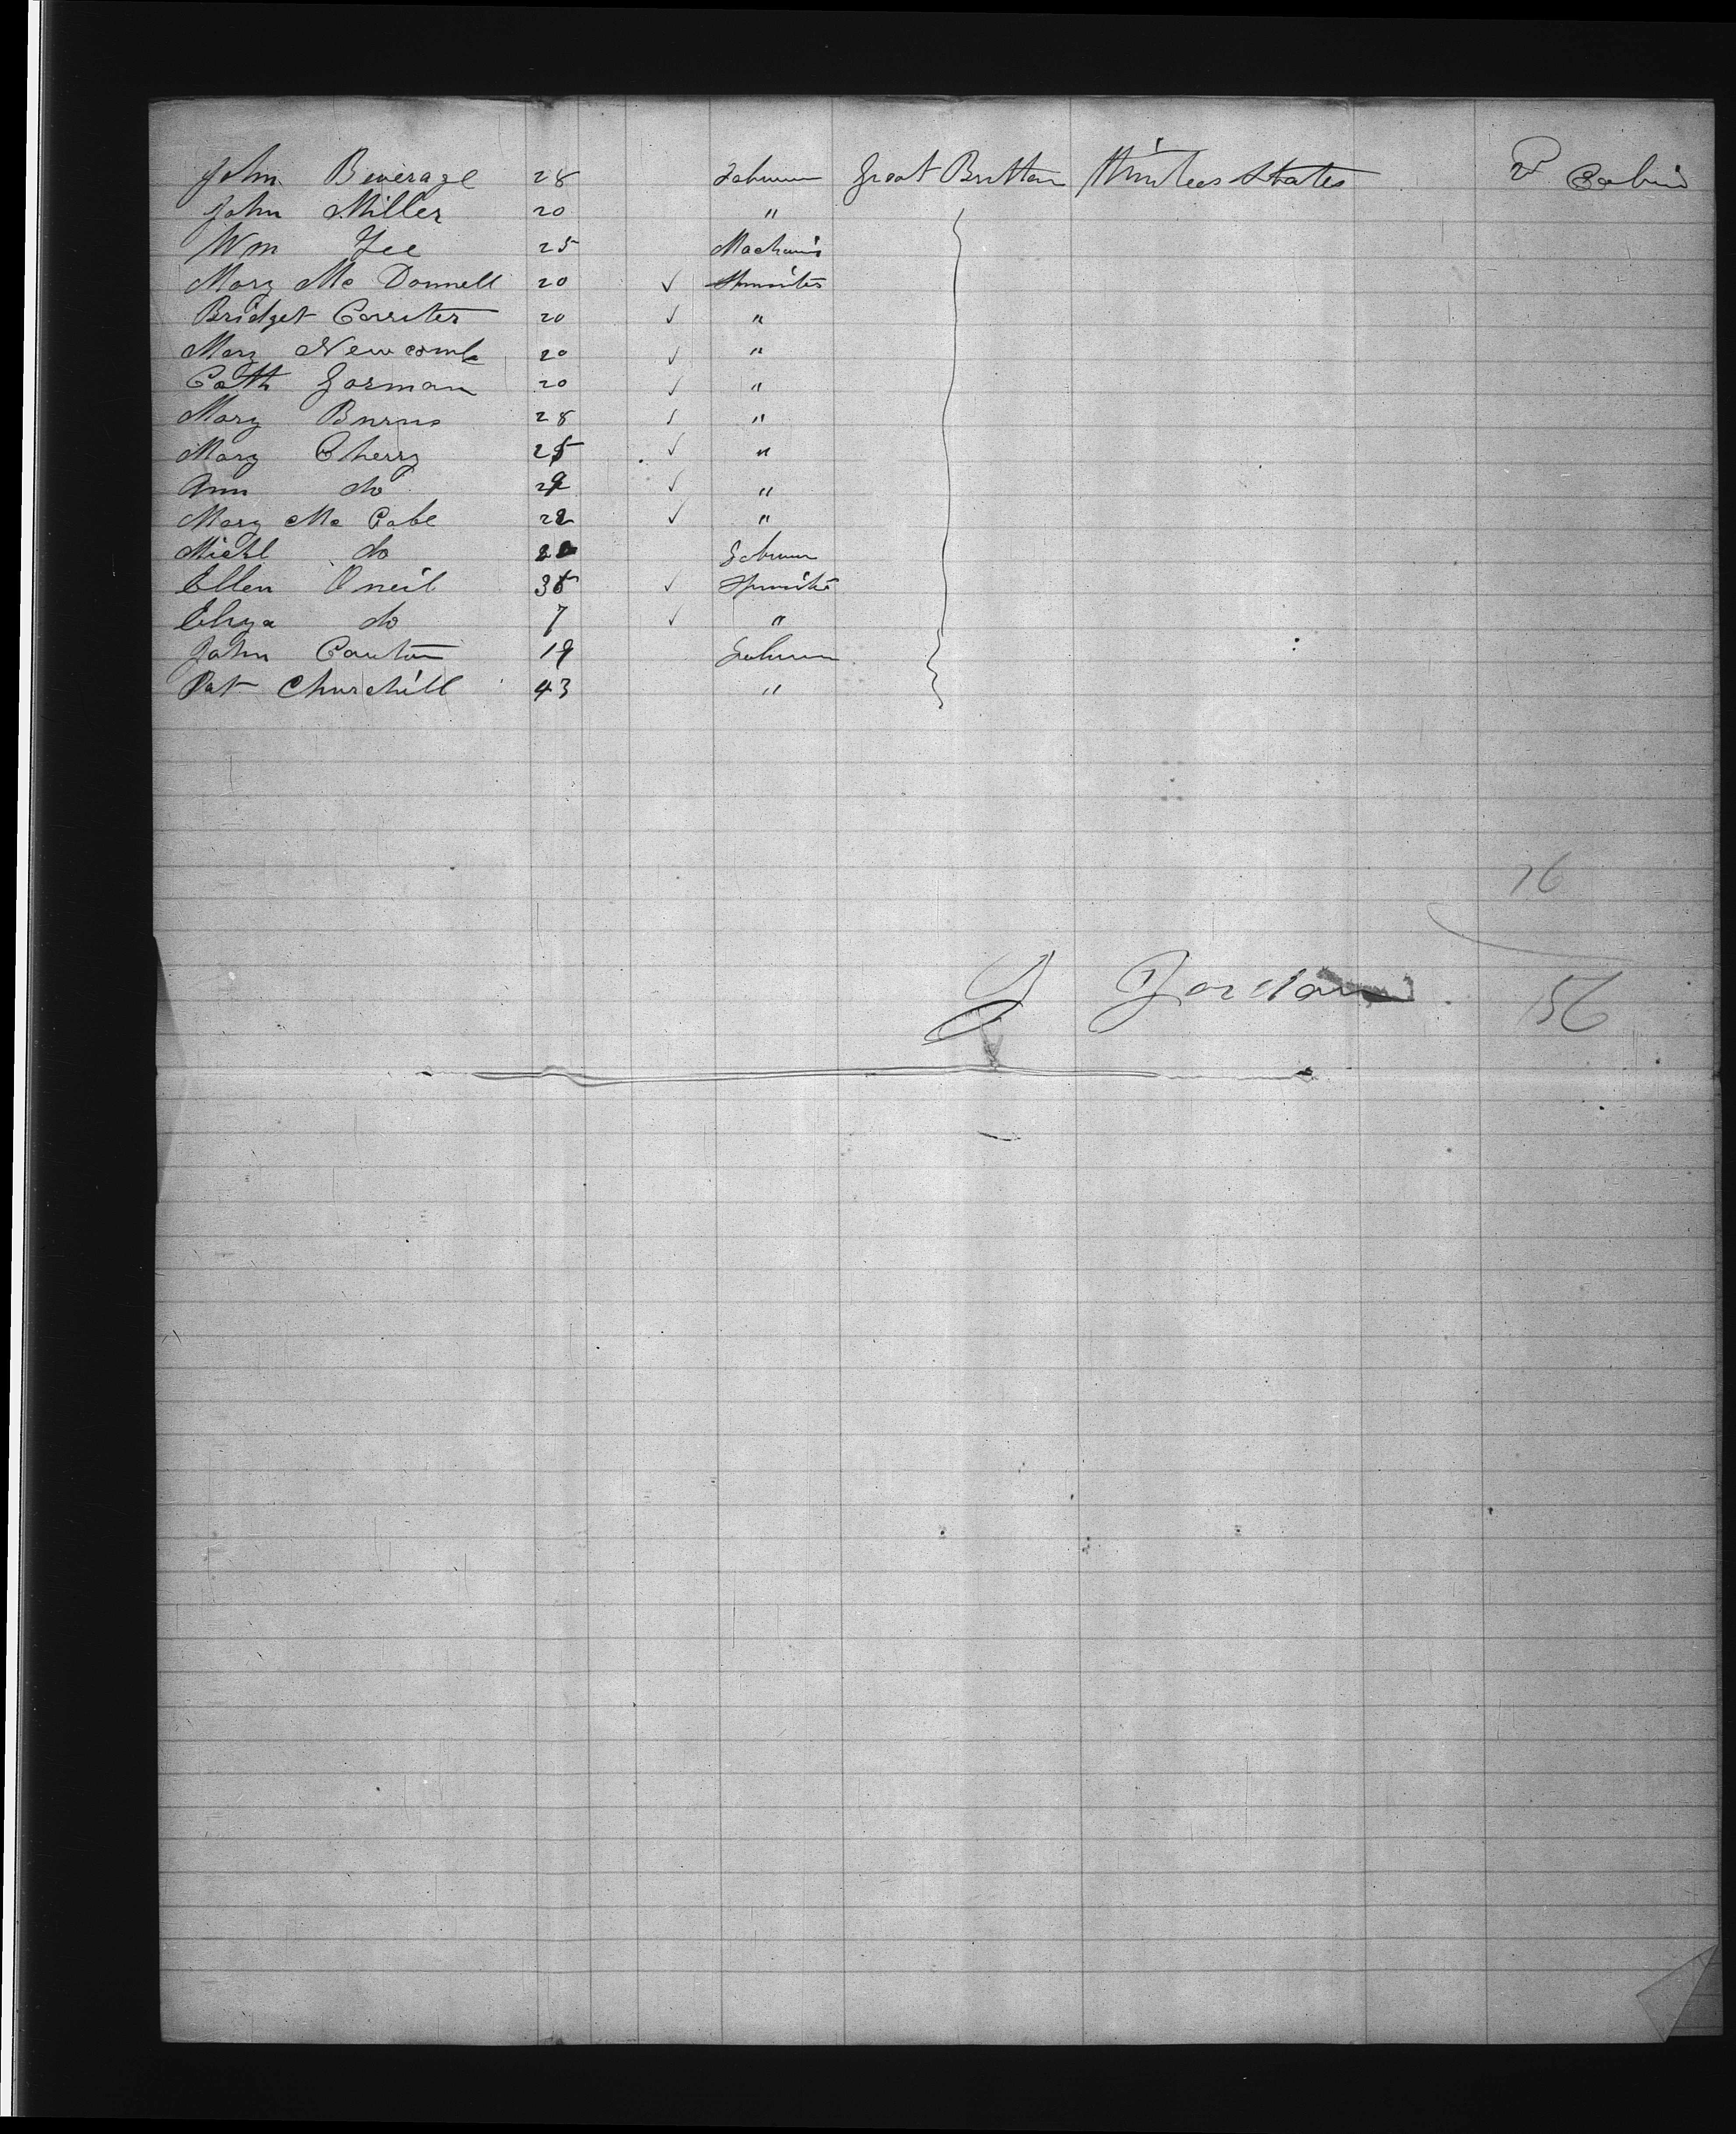 John Beverage 28 Labourer Great Brittan United States 2d Cabin
John Miller 20 "
Wm Lee 25 Mechanic
Mary Mc Donnell 20 ✓ Spinster
Bridget Carriter 20 ✓ "
Mary Newcomb 20 ✓ "
Cath Gorman 20 ✓ "
Mary Burns 28 ✓ "
Mary Cherry 25 ✓ "
Ann do ✓ "
Mary Mc Cabe 22 ✓ "
Michl do Labourer
Ellen Oneil 35 ✓ Spinster
Eliza do 7 ✓ "
John 19 Labourer
Pat Churchill 43 "
16
Jordan
156